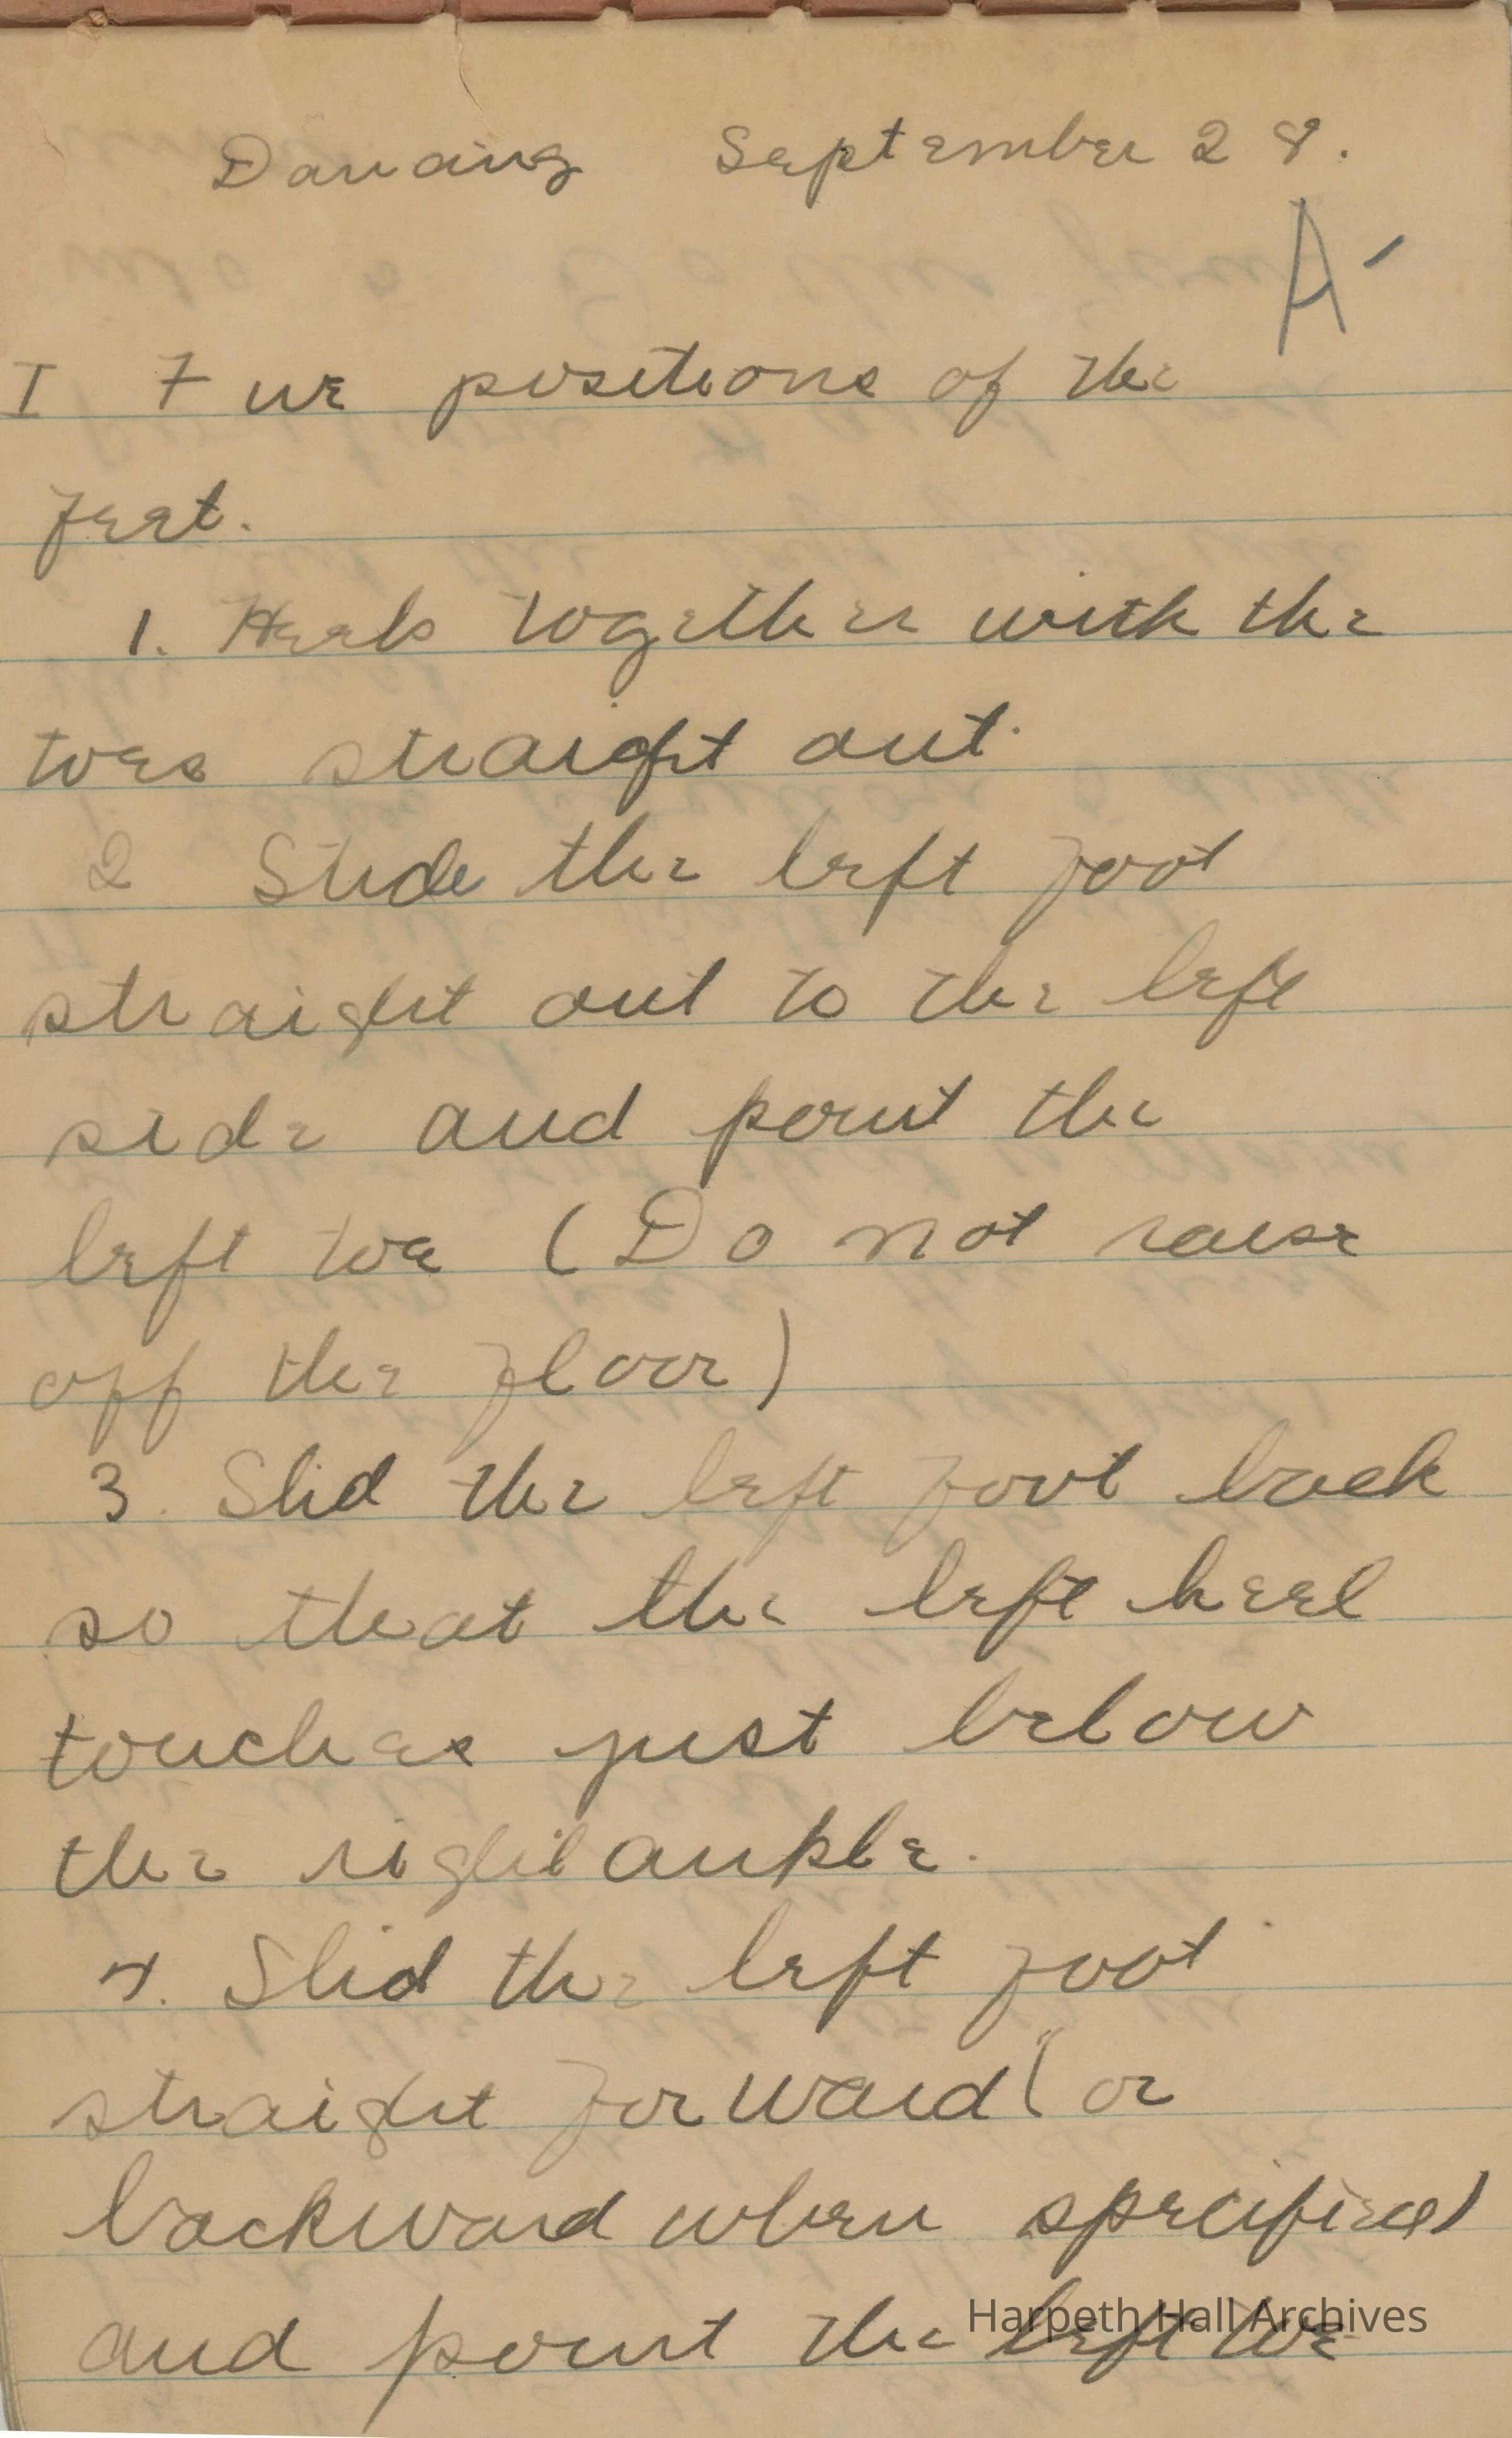 Dancing September 28.
A-
I Five positions of the
feet.
1. Heels together with the
toes straight out.
2 Slide the left foot
straight out to the left
side and point the
left toe (Do not raise
off the floor)
3. Slid the left foot back
so that the left heel
touches just below
the right ankle.
4. Slid the left foot
straight forward (or
backward when specified)
and point the left toe
Harpeth Hall Archives